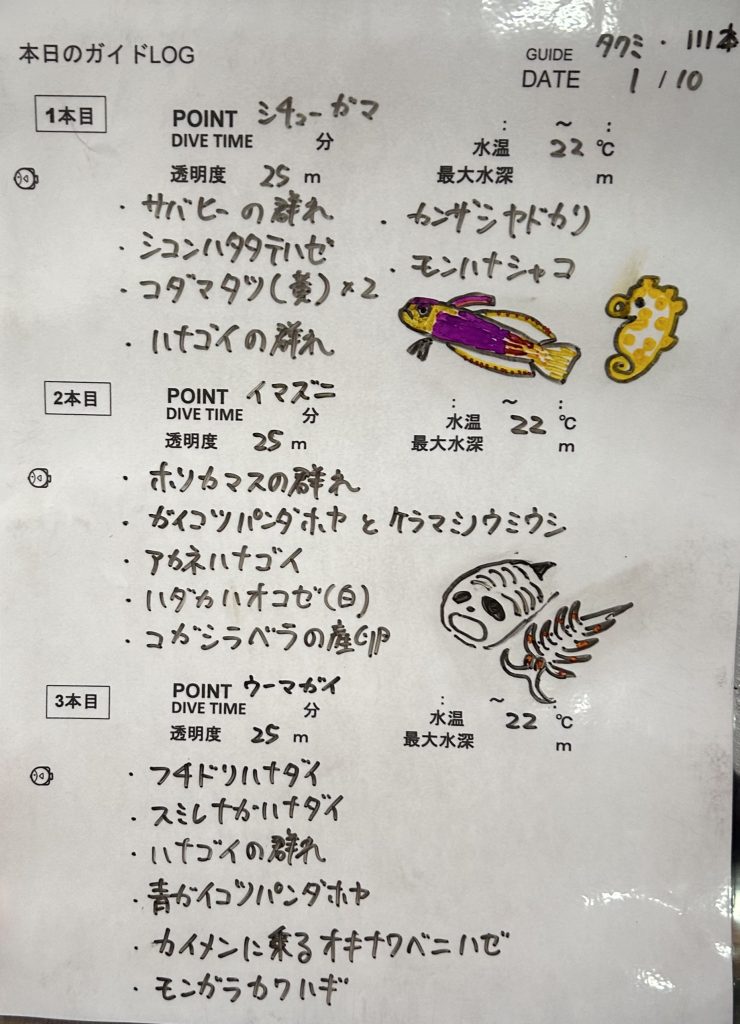 本日のガイドLOG
GUIDE タクミ・川本
DATE 1 / 10
1本目
POINT シチューガマ
DIVE TIME 分 : ～ :
水温 22 ℃
透明度 25 m 最大水深 m
・サバヒーの群れ
・カンザシヤドカリ
・シコンハタタテハゼ
・モンハナシャコ
・コダマタツ(黄)×2
・ハナゴイの群れ
2本目
POINT イマズニ
DIVE TIME 分 : ～ :
水温 22 ℃
透明度 25 m 最大水深 m
・ホソカマスの群れ
・ガイコツパンダホヤとケラマミノウミウシ
・アカネハナゴイ
・ハダカハオコゼ(白)
・コガシラベラの産卵
3本目
POINT ウーマガイ
DIVE TIME 分 : ～ :
水温 22 ℃
透明度 25 m 最大水深 m
・フチドリハナダイ
・スミレナガハナダイ
・ハナゴイの群れ
・青ガイコツパンダホヤ
・カイメンに乗るオキナワベニハゼ
・モンガラカワハギ